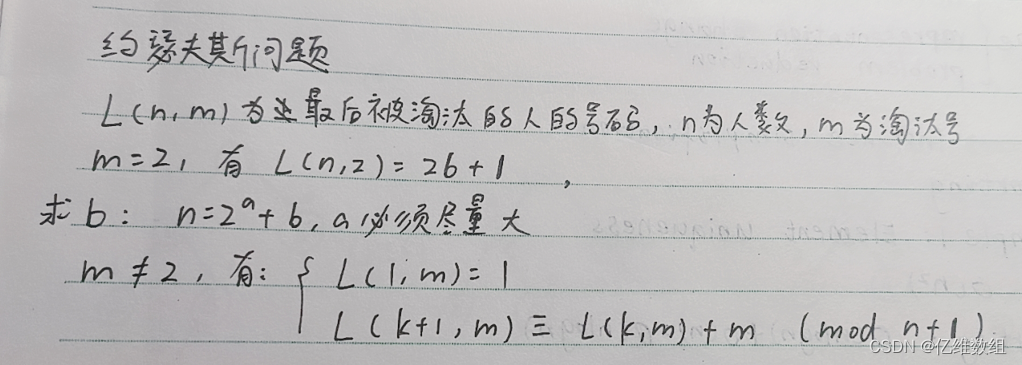 约瑟夫斯问题
L(n,m)为最后被淘汰的人的号码,n为人数,m为淘汰号
m=2,有 L(n,2)=2b+1,
求b: n=2^a+b,a必须尽量大
m≠2,有:{ L(1,m)=1
L(k+1,m)≡L(k,m)+m (mod n+1)
CSDN @亿维数组